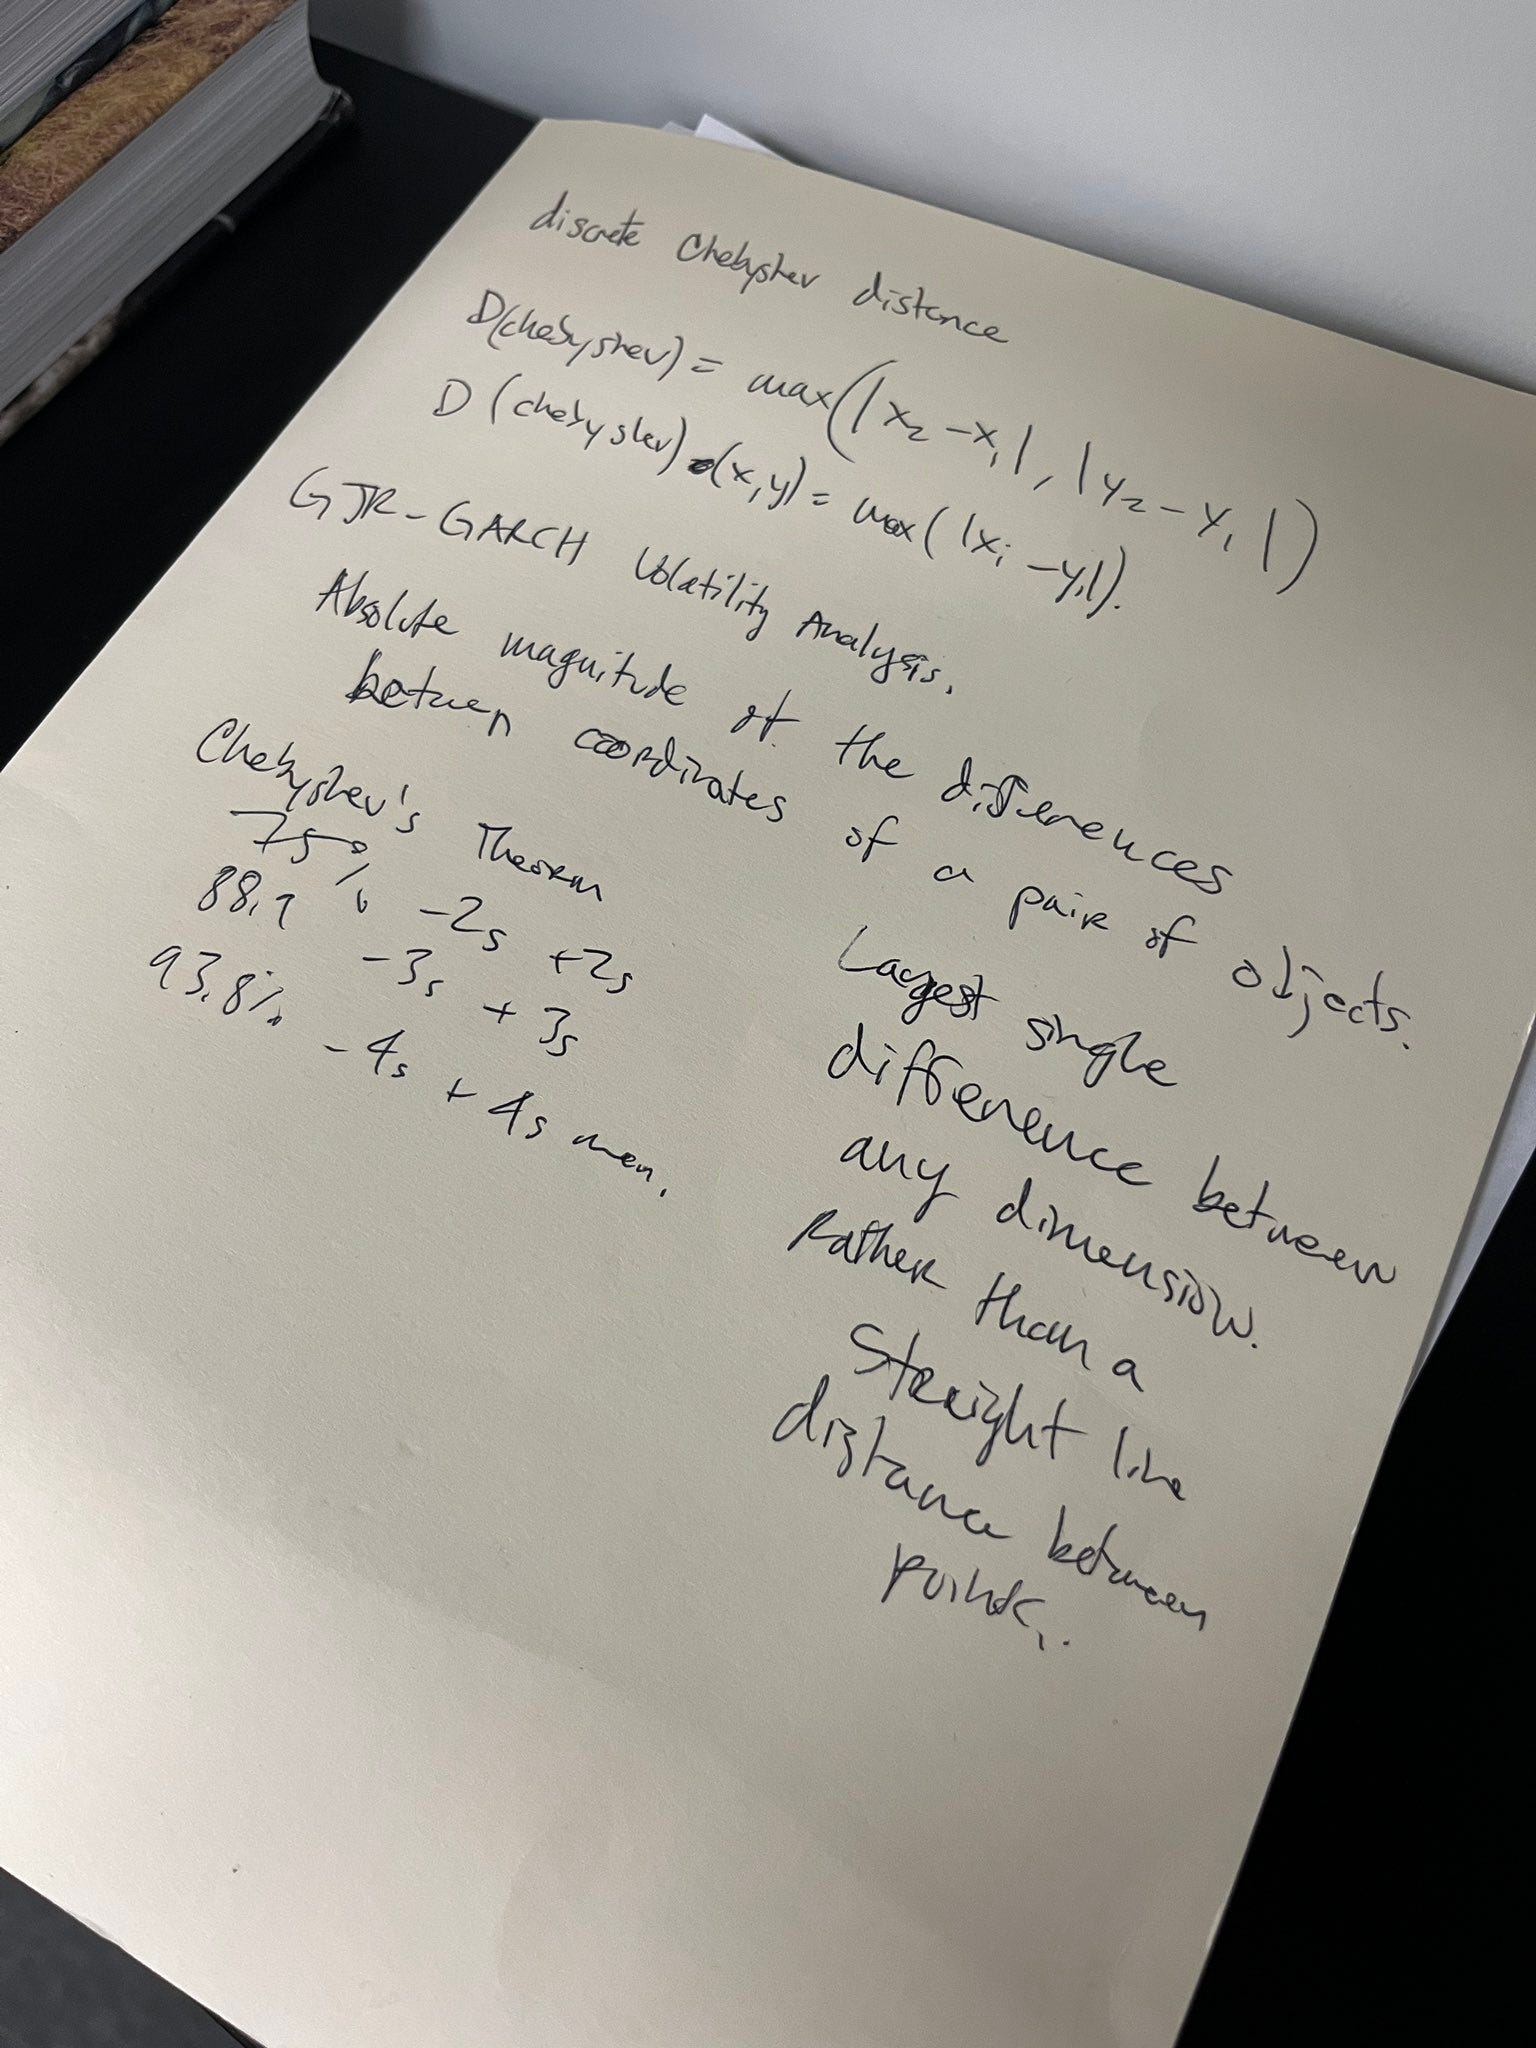 discrete Chebyshev distance
D(chebyshev) = max(|x₂ - x₁|, |y₂ - y₁|)
D (chebyshev) (x,y) = max(|xi - yi|).
GJR-GARCH Volatility Analysis.
Absolute magnitude of the differences
between coordinates of a pair of objects.
Chebyshev's Theorem
75% -2s +2s
88.9 -3s +3s
93.8% -4s +4s
Largest single
difference between
any dimension.
Rather than a
straight line
distance between
points.